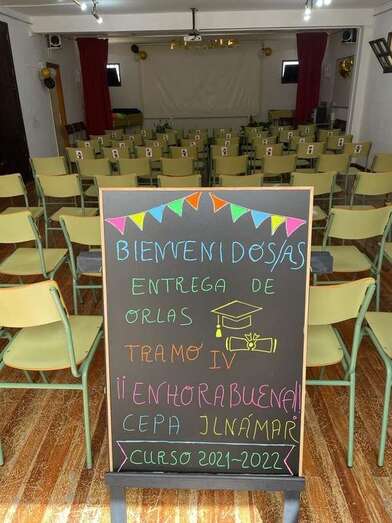 BIENVENIDOS/AS
ENTREGA DE
ORLAS
TRAMO IV
¡¡ENHORABUENA!!
CEPA JINÁMAR
CURSO 2021-2022